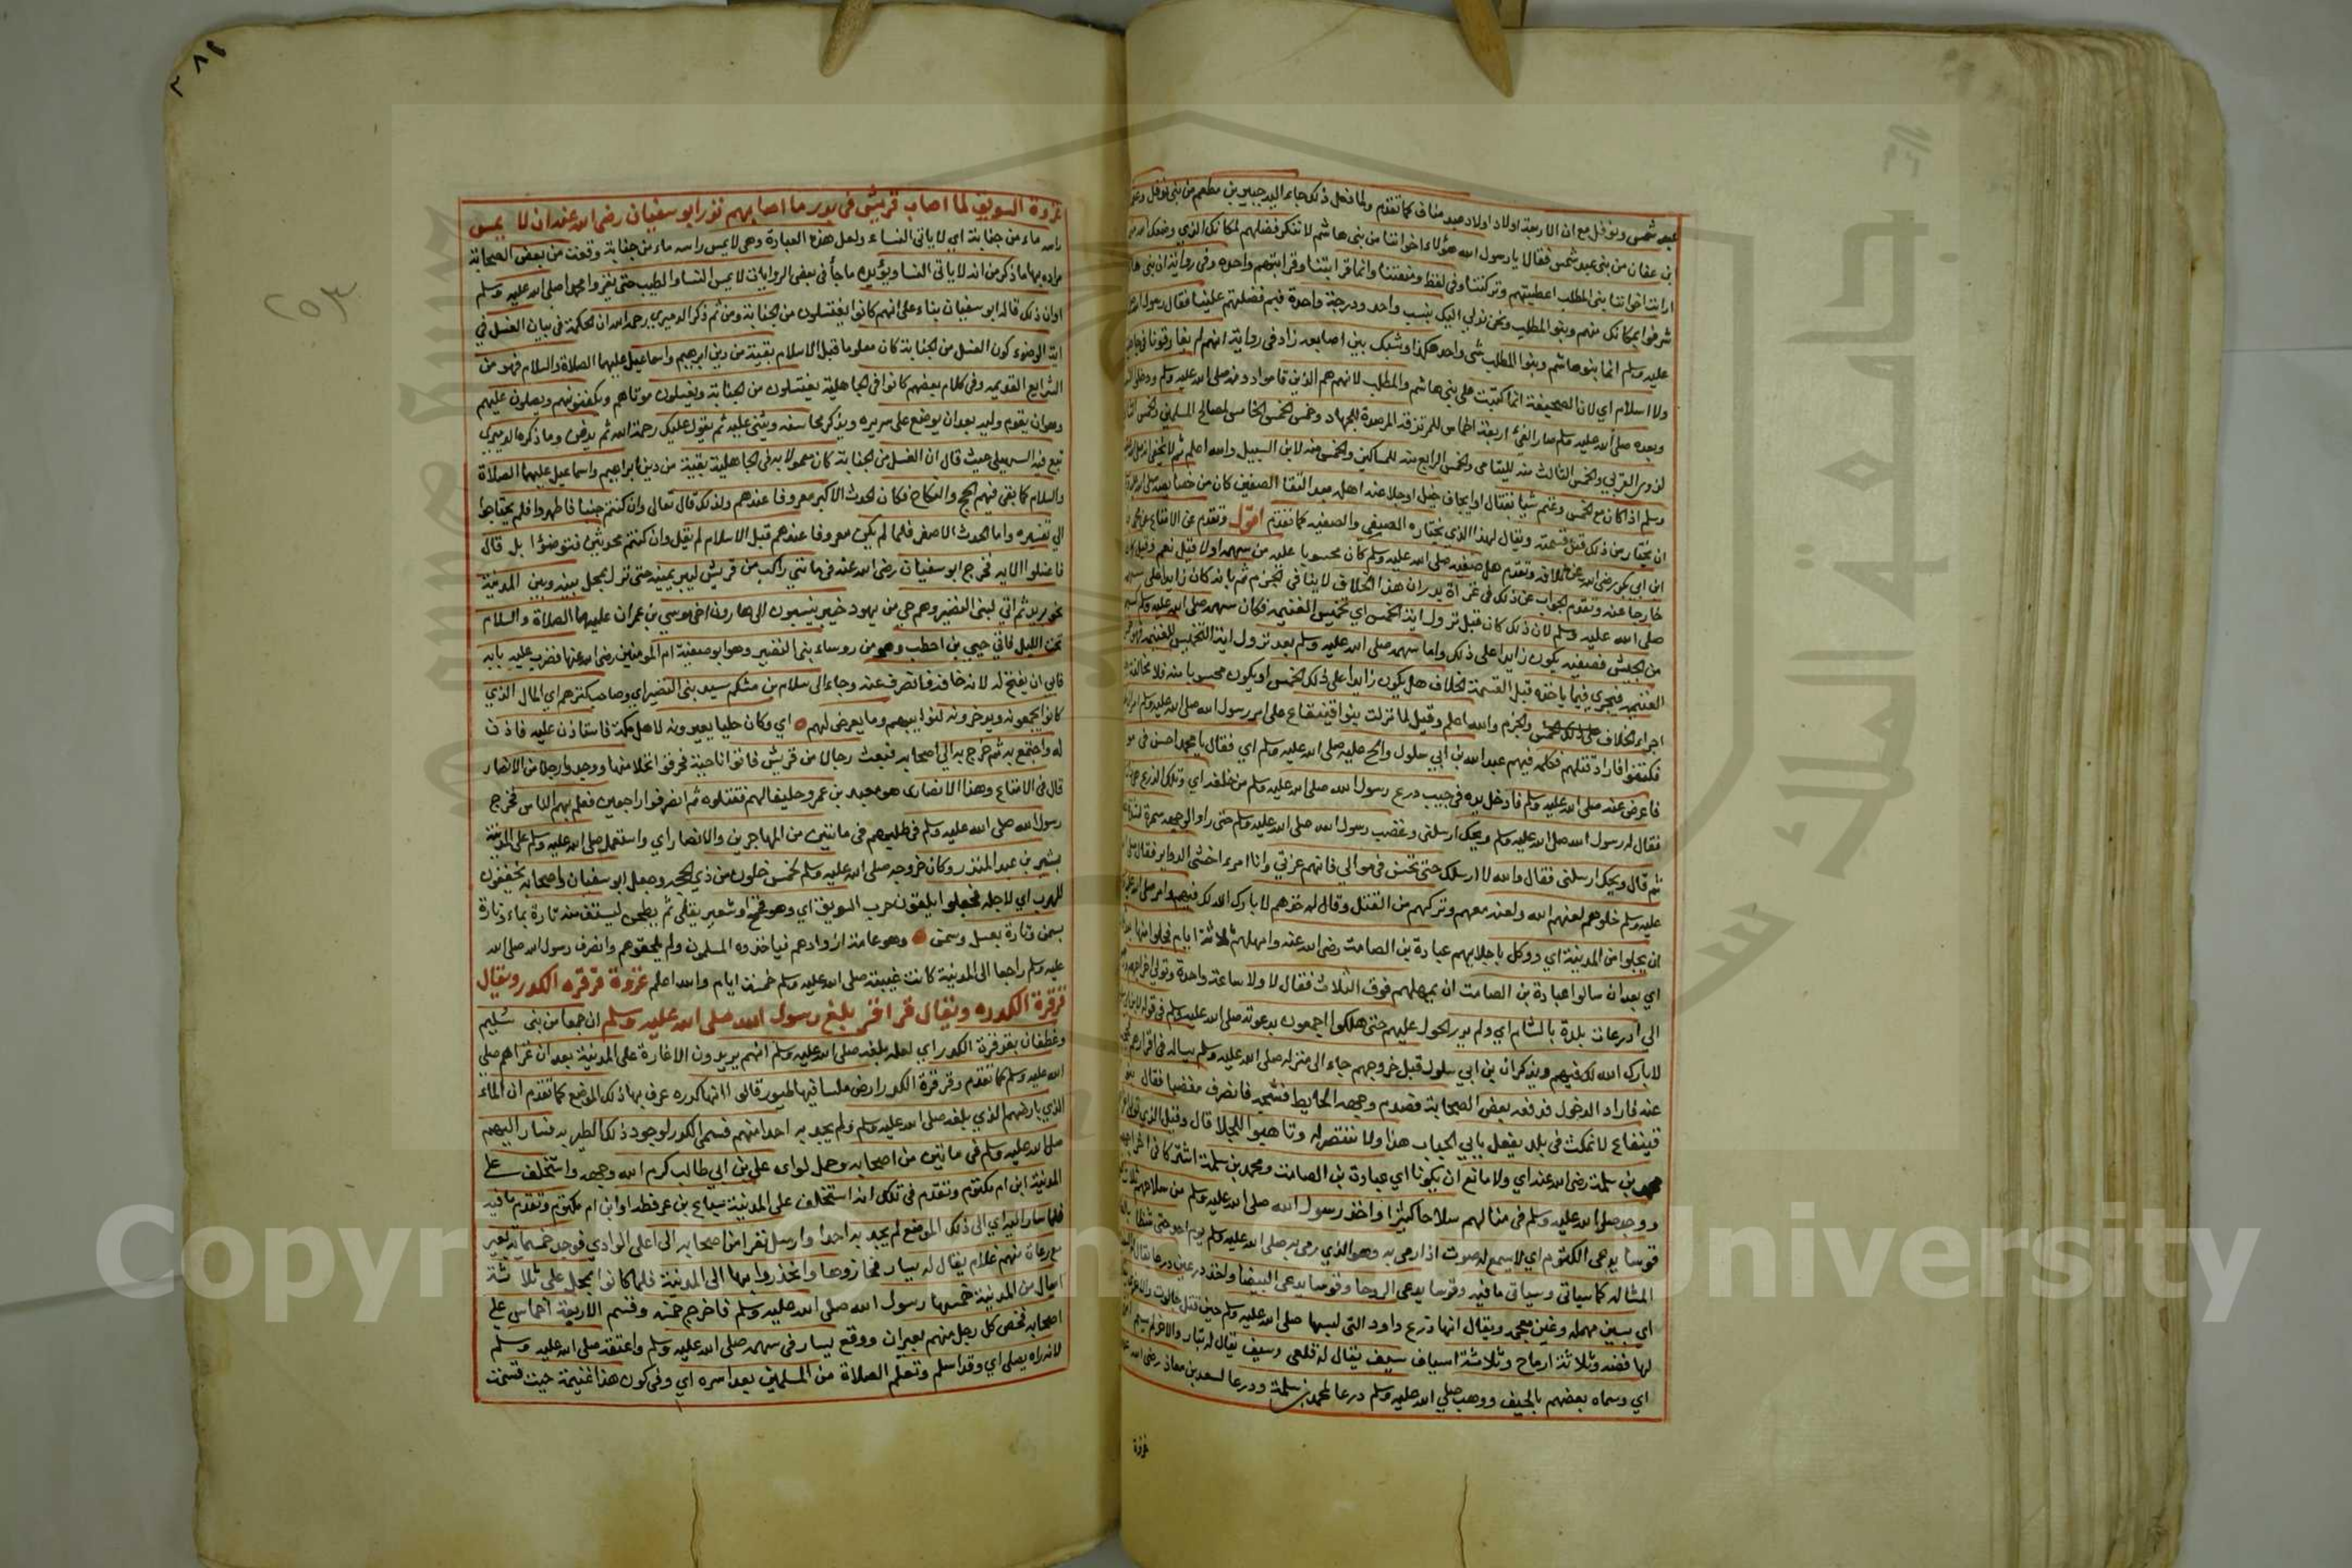 عبد شمس ونوفل مع ان الاربعة اولاد عبد مناف كما تقدم ولما فعل ذلك جاء اليه جبير بن مطعم من بني نوفل
ابن عفان من بني عبد شمس فقالا يا رسول الله هؤلاء اخواننا من بني هاشم لا ننكر فضلهم لمكانك الذي وضعك الله
ارايت اخواننا بني المطلب اعطيتهم وتركتنا وفي لفظ ومنعتنا وانما قرابتنا وقرابتهم واحدة وفي رواية ان بني
شرفوا بمكانك منهم وبنو المطلب ونحن ندلي اليك بنسب واحد ودرجة واحدة فبم فضلتهم علينا فقال رسول الله
عليه وسلم انما بنو هاشم وبنوا المطلب شي واحد هكذا وشبك بين اصابعه زاد في رواية انهم لم يفارقونا في
ولا اسلام اي لان الصحيفة انما كتبت على بني هاشم والمطلب لانهم هم الذين قاموا دونه صلى الله عليه وسلم ودخلوا
وبعده صلى الله عليه وسلم صار الفئ اربعة اخماس للمرتزقة المرصدة للجهاد وخمس الخمس الخامس لمصالح المسلمين والخمس
لذوي القربى والخمس الثالث منه لليتامى والخمس الرابع منه للمساكين والخمس منه لابن السبيل والله اعلم ثم لا يخفى
وسلم اذا كان مع الجيش وغنم شيا بقتال او ايجاف خيل اوجلا عنه اهله بعد التقا الصفين كان من خصايصه
ان يختار من ذلك قبل قسمته ويقال لهذا الذي يختاره الصفي والصفية كما تقدم اقول وتقدم عن الامتاع
ابي بكر رضي الله عنه خلافه وتقدم هل صفيه صلى الله عليه وسلم كان محسوبا عليه من سهمه اولا قيل نعم وقيل كان
خارجا عنه وتقدم الجواب عن ذلك في غزاة بدر ان هذا الخلاف لا ينافي الجزم ثم بانه كان زايدا على
صلى الله عليه وسلم لان ذلك كان قبل نزول اية الخمس اي تخميس الغنيمة فكان سهمه صلى الله عليه وسلم
من الجيش فصفيه يكون زايدا على ذلك واما سهمه صلى الله عليه وسلم بعد نزول اية التخميس للغنيمة فهو خمس
الغنيمة فيجري فيما ياخذه قبل القسمة الخلاف هل يكون زايدا على ذلك الخمس او يكون محسوبا منه فلا مخالفة
اجراء الخلاف والجزم والله اعلم وقيل لما نزلت بنوا قينقاع على امر رسول الله صلى الله عليه وسلم امر
فكتفوا فاراد قتلهم فكلمه فيهم عبد الله بن ابي سلول والح عليه صلى الله عليه وسلم اي فقال يا محمد احسن في
فاعرض عنه صلى الله عليه وسلم فادخل يده في جيب درع رسول الله صلى الله عليه وسلم من خلفه اي وتلك الدرع
فقال له رسول الله صلى الله عليه وسلم ويحك ارسلني وغضب رسول الله صلى الله عليه وسلم حتى راوا لوجهه سمرة
ثم قال ويحك ارسلني فقال والله لا ارسلك حتى تحسن في موالي فانهم عزتي وانا امرء اخشى الدواير فقال
عليه وسلم خلوهم لعنهم الله ولعنه معهم وتركهم من القتل وقال له خذهم لا بارك الله لك فيهم وامر صلى الله عليه
ان يجلوا من المدينة اي ووكل باجلايهم عبادة بن الصامت رضي الله عنه وامهلهم ثلاثة ايام فجلوا منها
اي بعد ان سالوا عبادة بن الصامت ان يمهلهم فوق الثلاث فقال لا ولا ساعة واحدة وتولى اخراجهم
الى ادرعات بلدة بالشام اي ولم يدر الحول عليهم حتى هلكوا اجمعون بدعوته صلى الله عليه وسلم في قوله
لا بارك الله لك فيهم ويذكر ان بن ابي سلول قبل خروجهم جاء الى منزله صلى الله عليه وسلم يساله في اقرارهم
عنه فاراد الدخول فدفعه بعض الصحابة فصدم وجهه الحايط فشجه فانصرف مغضبا فقال بنو
قينقاع لا نمكث في بلد يفعل بابي الحباب هذا ولا ننتصر له وتاهبوا للجلا قال وقيل الذي تولى
محمد بن سلمة رضي الله عنه اي ولا مانع ان يكونا اي عبادة بن الصامت ومحمد بن سلمة اشتركا في اخراجهم
ووجد صلى الله عليه وسلم في منازلهم سلاحا كثيرا واخذ رسول الله صلى الله عليه وسلم من سلاحهم ثلاث
قوسا يدعى الكتوم اي لا يسمع له صوت اذا رمي به وهو الذي رمى به صلى الله عليه وسلم يوم احد حتى تشظا
المشاله كما سياتي وسياتي ما فيه وقوسا يدعى الروحا وقوسا يدعى البيضا واخذ درعين درعا يقال لها
اي بسين مهمله وغين معجمه ويقال انها درع داود التي لبسها صلى الله عليه وسلم حين قتل جالوت
لها فضه وثلاثة ارماح وثلاثة اسياف سيف يقال له قلعي وسيف يقال له بتار والاخر لم يسم
اي وسماه بعضهم بالحيف ووهب صلى الله عليه وسلم درعا لمحمد بن سلمة ودرعا لسعد بن معاذ رضي الله
غزوة
٢٨٩
غزوة السويق لما اصاب قريش في بدر ما اصابهم نذر ابو سفيان رضي الله عنه ان لا يمس
راسه ماء من جنابة اي لا ياتي النساء ولعل هذه العبارة وهي لا يمس راسه ماء من جنابة وقعت من بعض الصحابة
مراده بها ما ذكر من انه لا ياتي النسا ويؤيده ما جا في بعض الروايات لا يمس النسا والطيب حتى يغزوا محمدا صلى الله عليه وسلم
اوان ذلك قاله ابو سفيان بناء على انهم كانوا يغتسلون من الجنابة ومن ثم ذكر الدميري رحمه الله ان الحكمة في بيان الغسل في
اية الوضوء كون الغسل من الجنابة كان معلوما قبل الاسلام بقية من دين ابرهيم واسماعيل عليهما الصلاة والسلام فهو من
الشرايع القديمه وفي كلام بعضهم كانوا في الجاهلية يغتسلون من الجنابة ويغسلون موتاهم ويكفنونهم ويصلون عليهم
وهو ان يقوم وليه بعد ان يوضع على سريره ويذكر محاسنه ويثني عليه ثم يقول عليك رحمة الله ثم يدفن وما ذكره الدميري
تبع فيه السهيلي حيث قال ان الغسل من الجنابة كان معمولا به في الجاهلية بقية من دين ابراهيم واسماعيل عليهما الصلاة
والسلام كما بقى فيهم الحج والنكاح فكان الحدث الاكبر معروفا عندهم ولذلك قال تعالى وان كنتم جنبا فاطهروا فلم يحتاجوا
الى تفسيره واما الحدث الاصغر فلما لم يكن معروفا عندهم قبل الاسلام لم يقل وان كنتم محدثين فتوضؤا بل قال
فاغسلوا الايه فخرج ابو سفيان رضي الله عنه في مائتي راكب من قريش ليبر يمينه حتى نزل بمحل بينه وبين المدينة
نحو بريد ثم اتى لبني النضير وهم حي من يهود خيبر ينسبون الى هارون اخي موسى بن عمران عليهما الصلاة والسلام
تحت الليل فاتى حيي بن اخطب وهو من روساء بني النضير وهو ابو صفية ام المومنين رضي الله عنها فضرب عليه بابه
فابى ان يفتح له لانه خافه فانصرف عنه وجاء الى سلام بن مشكم سيد بني النضير اي وصاحب كنزهم اي المال الذي
كانوا يجمعونه ويدخرونه لنوايبهم وما يعرض لهم اي وكان حليا يعيرونه لاهل مكة فاستاذن عليه فاذن
له واجتمع به ثم خرج به الى اصحابه فبعث رجالا من قريش فاتوا ناحية فحرقوا نخلا منها ووجدوا رجلا من الانصار
قال في الامتاع وهذا الانصارى هو معبد بن عمرو وحليفا لهم فقتلوه ثم انصرفوا راجعين فعلم بهم الناس فخرج
رسول الله صلى الله عليه وسلم في طلبهم في مائتين من المهاجرين والانصار اي واستعمل صلى الله عليه وسلم على المدينة
بشير بن عبد المنذر وكان خروجه صلى الله عليه وسلم لخمس خلون من ذي الحجه وجعل ابو سفيان واصحابه يخففون
للهرب اي لاجله فجعلوا يلقون جرب السويق اي وهو قمح او شعير يقلى ثم يطحن ليستف منه تارة بماء وتارة
بسمن وتارة بعسل وسمن وهو عامة ازوادهم فياخذه المسلمون ولم يلحقوهم وانصرف رسول الله صلى الله
عليه وسلم راجعا الى المدينة كانت غيبته صلى الله عليه وسلم خمسة ايام والله اعلم غزوة قرقره الكدر ويقال
قرقرة الكدره ويقال قراقر بلغ رسول الله صلى الله عليه وسلم ان جمعا من بني سليم
وغطفان بقرقرة الكدر اي لعله بلغه صلى الله عليه وسلم انهم يريدون الاغارة على المدينة بعد ان غزاهم صلى
الله عليه وسلم كما تقدم وقرقرة الكدر ارض ملسا فيها طيور قالوا انها كدره عرف بها ذلك الموضع كما تقدم ان الماء
الذي بارضهم الذي بلغه صلى الله عليه وسلم ولم يجد به احدا منهم يسمى الكدر لوجود ذلك الطير به فسار اليهم
صلى الله عليه وسلم في مائتين من اصحابه وحمل لواءه علي بن ابي طالب كرم الله وجهه واستخلف على
المدينة ابن ام مكتوم وتقدم في تلك انه استخلف على المدينة سباع بن عرفطه او ابن ام مكتوم وتقدم ما فيه
فلما سار اليه اي الى ذلك الموضع لم يجد به احدا وارسل نفرا من اصحابه الى اعلى الوادي فوجد خمسماية بعير
مع رعاة منهم غلام يقال له يسار فحازوها وانحدروا بها الى المدينة فلما كانوا بمحل على ثلاثة
اميال من المدينة خمسها رسول الله صلى الله عليه وسلم فاخرج خمسه وقسم الاربعة اخماس على
اصحابه فخص كل رجل منهم بعيران ووقع يسار في سهمه صلى الله عليه وسلم واعتقه صلى الله عليه وسلم
لانه راه يصلي اي وقد اسلم وتعلم الصلاة من المسلمين بعد اسره اي وفي كون هذا غنيمة حيث قسمت
Copyright © King Saud University